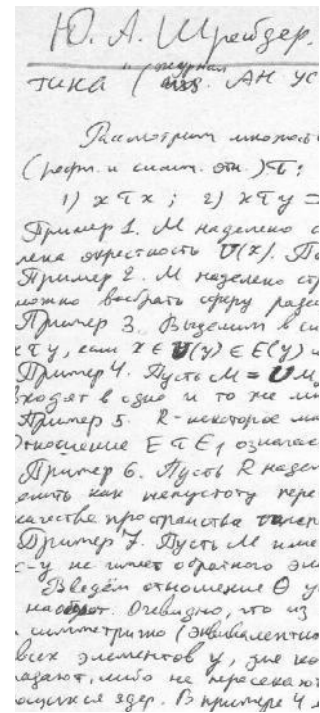 Ю. А. Шрейдер.
тика" (журнал изд. АН УС
Рассмотрим множест
(рефл. и симм. отн.) τ:
1) x τ x ; 2) x τ y =
Пример 1. M наделено с
лена окрестность U(x). По
Пример 2. M наделено стр
можно выбрать сферу ради
Пример 3. Выделим в си
x τ y, если x ∈ U(y) ∈ E(y) и
Пример 4. Пусть M = U M
входят в одно и то же мн
Пример 5. R - некоторое мн
Отношение E τ E₁ означае
Пример 6. Пусть R надел
елить как непустоту пере
качестве пространства толер
Пример 7. Пусть M име
x-y не имеет обратного эл
Введём отношение θ у
наоборот. Очевидно, что из
симметрично (эквивалентно
всех элементов y, для ко
падают, либо не пересекают
ядер. В примере 4